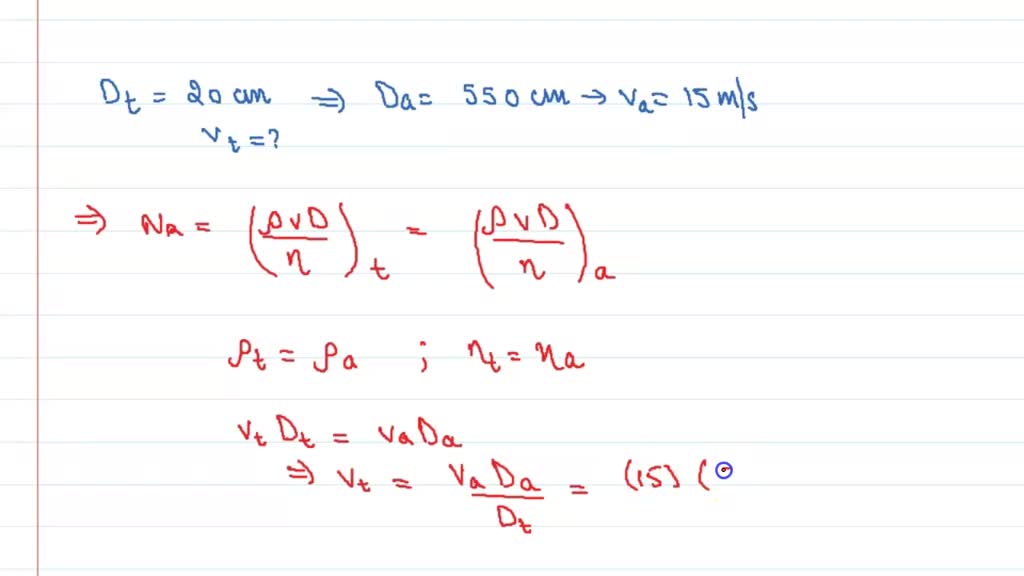 Dt = 20 cm ⇒ Da = 550 cm → Va = 15 m/s
Vt = ?
⇒ NR = (ρVD/η)t = (ρVD/η)a
ρt = ρa ; ηt = ηa
Vt Dt = Va Da
⇒ Vt = Va Da / Dt = (15) (